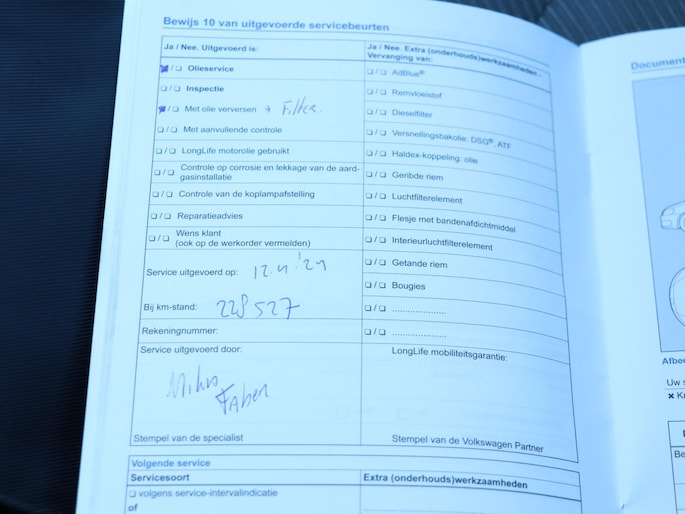 Bewijs 10 van uitgevoerde servicebeurten
Ja / Nee. Uitgevoerd is:
☒ / ☐ Olieservice
☐ / ☐ Inspectie
☒ / ☐ Met olie verversen + Filter.
☐ / ☐ Met aanvullende controle
☐ / ☐ LongLife motorolie gebruikt
☐ / ☐ Controle op corrosie en lekkage van de aard-
gasinstallatie
☐ / ☐ Controle van de koplampafstelling
☐ / ☐ Reparatieadvies
☐ / ☐ Wens klant
(ook op de werkorder vermelden)
Service uitgevoerd op:
Bij km-stand: 228527
Rekeningnummer:
Service uitgevoerd door:
Faber
Stempel van de specialist
Ja / Nee. Extra (onderhouds)werkzaamheden -
Vervanging van:
☐ / ☐ AdBlue®
☐ / ☐ Remvloeistof
☐ / ☐ Dieselfilter
☐ / ☐ Versnellingsbakolie: DSG®, ATF
☐ / ☐ Haldex-koppeling: olie
☐ / ☐ Geribde riem
☐ / ☐ Luchtfilterelement
☐ / ☐ Flesje met bandenafdichtmiddel
☐ / ☐ Interieurluchtfilterelement
☐ / ☐ Getande riem
☐ / ☐ Bougies
☐ / ☐ ....................
☐ / ☐ ....................
LongLife mobiliteitsgarantie:
Stempel van de Volkswagen Partner
Volgende service
Servicesoort
Extra (onderhouds)werkzaamheden
☐ volgens service-intervalindicatie
of
Document
Afbe
Uw s
Be